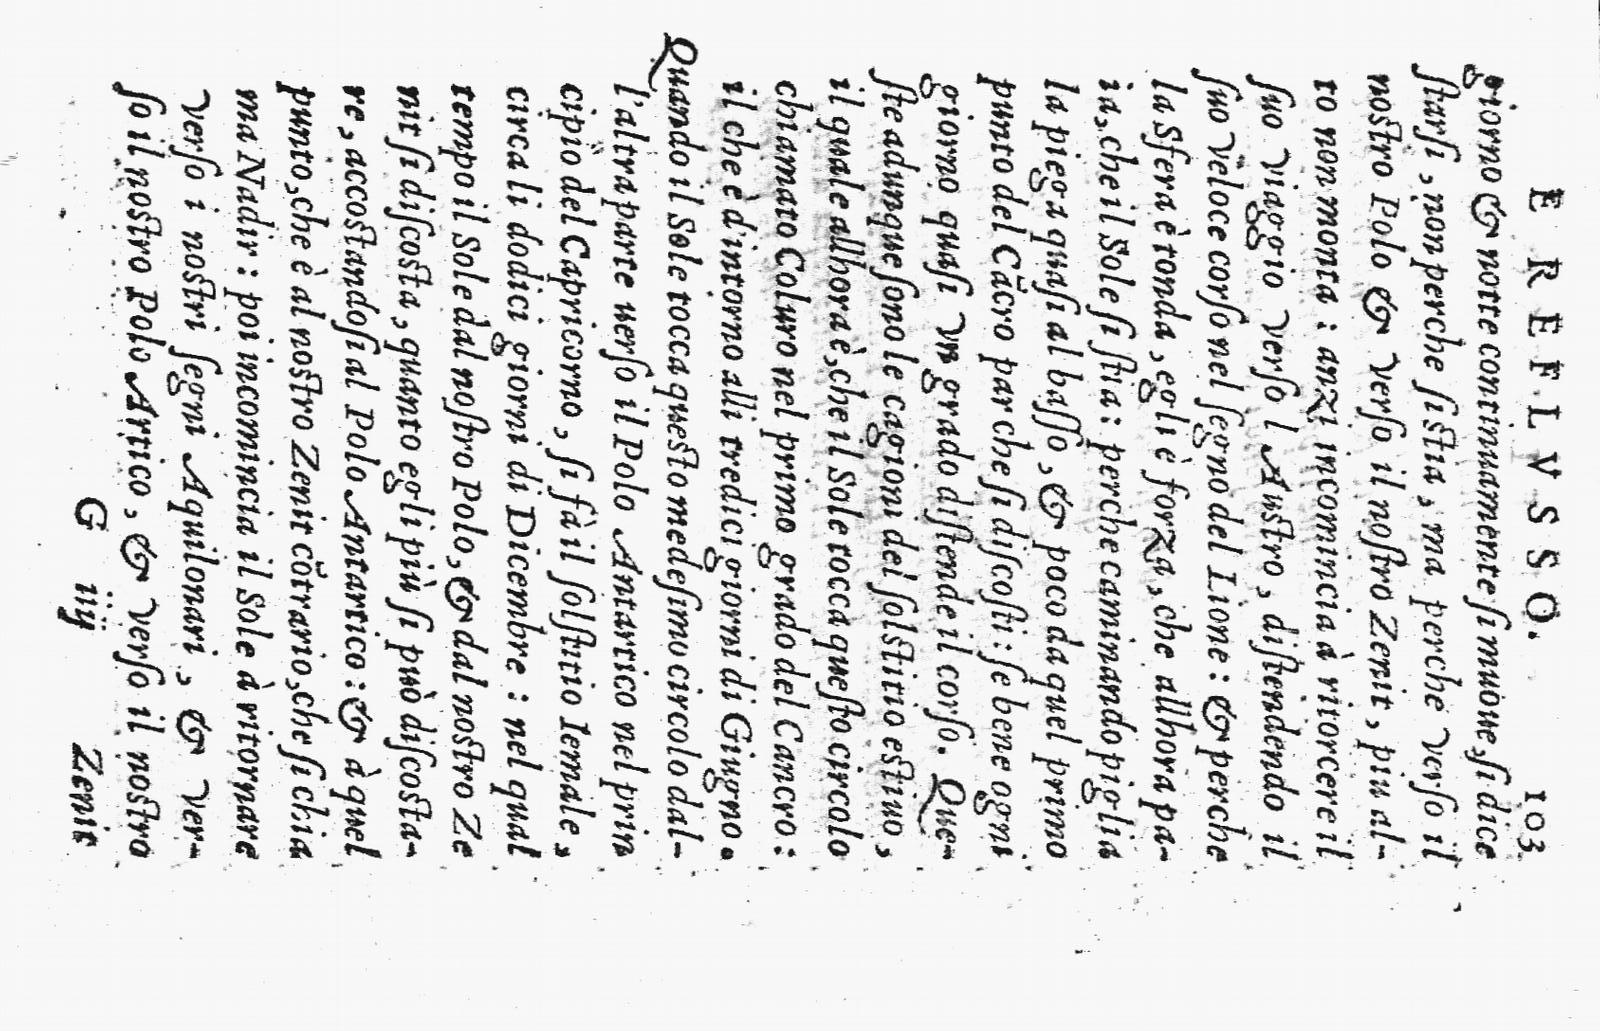 E REFLVSSO. 103
giorno & notte continuamente ſi muoue, ſi dice
ſtarſi, non perche ſi ſtia, ma perche verſo il
noſtro Polo & verſo il noſtro Zenit, piu al-
to non monta: anzi incomincia à ritorcere il
ſuo viaggio verſo l'Auſtro, diſtendendo il
ſuo veloce corſo nel ſegno del Lione: & perche
la Sfera è tonda, egli è forza, che allhora pa-
ia, che il Sole ſi ſtia: perche caminando piglia
la piega quaſi al baſſo, & poco da quel primo
punto del Cãcro par che ſi diſcoſti: ſe bene ogni
giorno quaſi vn grado diſtende il corſo. Que-
ſte adunque ſono le cagioni del ſolſtitio eſtiuo,
il quale allhora è, che il Sole tocca queſto circolo
chiamato Coluro nel primo grado del Cancro:
il che è d'intorno alli tredici giorni di Giugno.
Quando il Sole tocca queſto medeſimo circolo dal-
l'altra parte uerſo il Polo Antartico nel prin
cipio del Capricorno, ſi fà il ſolſtitio Iemale,
circa li dodici giorni di Dicembre: nel qual
tempo il Sole dal noſtro Polo, & dal noſtro Ze
nit ſi diſcoſta, quanto egli più ſi può diſcoſta-
re, accoſtandoſi al Polo Antartico: & à quel
punto, che è al noſtro Zenit cõtrario, che ſi chia
ma Nadir: poi incomincia il Sole à ritornare
verſo i noſtri ſegni Aquilonari, & ver-
ſo il noſtro Polo Artico, & verſo il noſtro
G iij Zenit